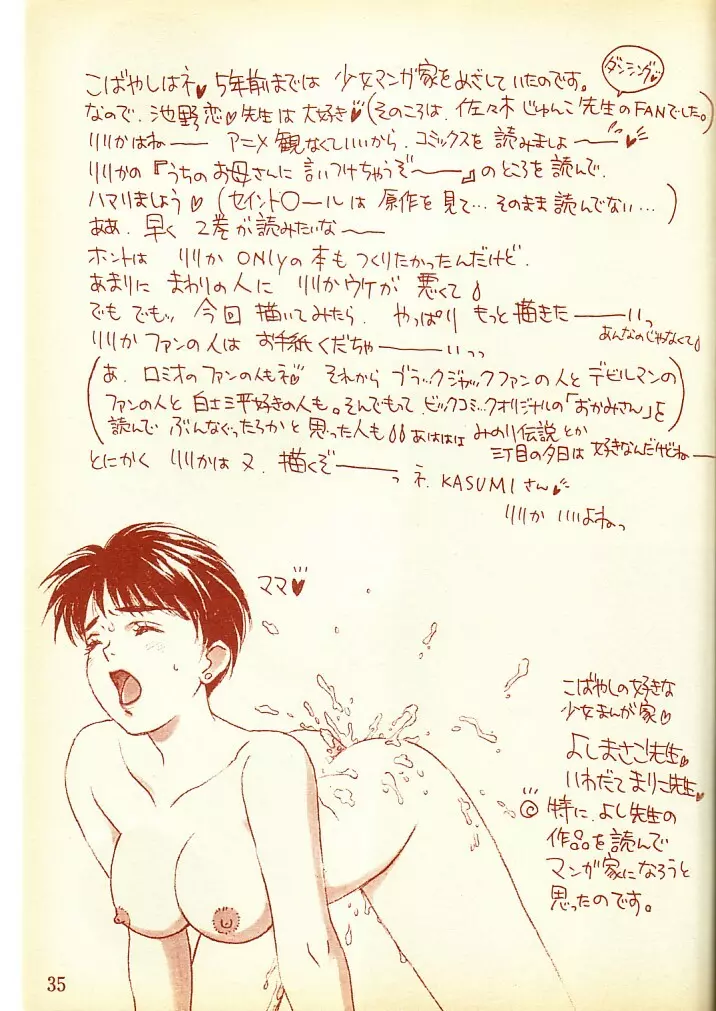 こばやしはネ♥5年前までは 少女マンガ家をめざしていたのです。
ダンシング♥
なので、池野恋♡先生は大好き♥(そのころは、佐々木じゅんこ先生のFANでした。)
リリかはねー アニメ観なくていいから、コミックスを読みましょー♥
リリかの『うちのお母さんに言いつけちゃうぞー』のところを読んで、
ハマりましょう♡(セイント〇ールは原作を見て…そのまま読んでない…)
ああ、早く2巻が読みたいなー
ホントはリリかONLyの本もつくりたかったんだけど、
あまりにまわりの人にリリかウケが悪くて
でもでもッ今回描いてみたら、やっぱりもっと描きたーいっ
あんなのじゃなくて
リリかファンの人はお手紙くだちゃーいっっ
(あ、ロミオのファンの人もネ♡それからブラックジャックファンの人とデビルマンの
ファンの人と白土三平好きの人も。そんでもってビックコミックオリジナルの「おかみさん」を
読んでぶんなぐったろかと思った人も あははは みのり伝説とか
三丁目の夕日は好きなんだけどねー)
とにかくリリかは又、描くぞーっ ネ、KASUMIさん♥
リリかいいよねっ
ママ♥
こばやしの好きな
少女まんが家♡
よしまさこ先生♥
いわだてまりこ先生♥
◎特に、よし先生の
作品を読んで
マンガ家になろうと
思ったのです。
35